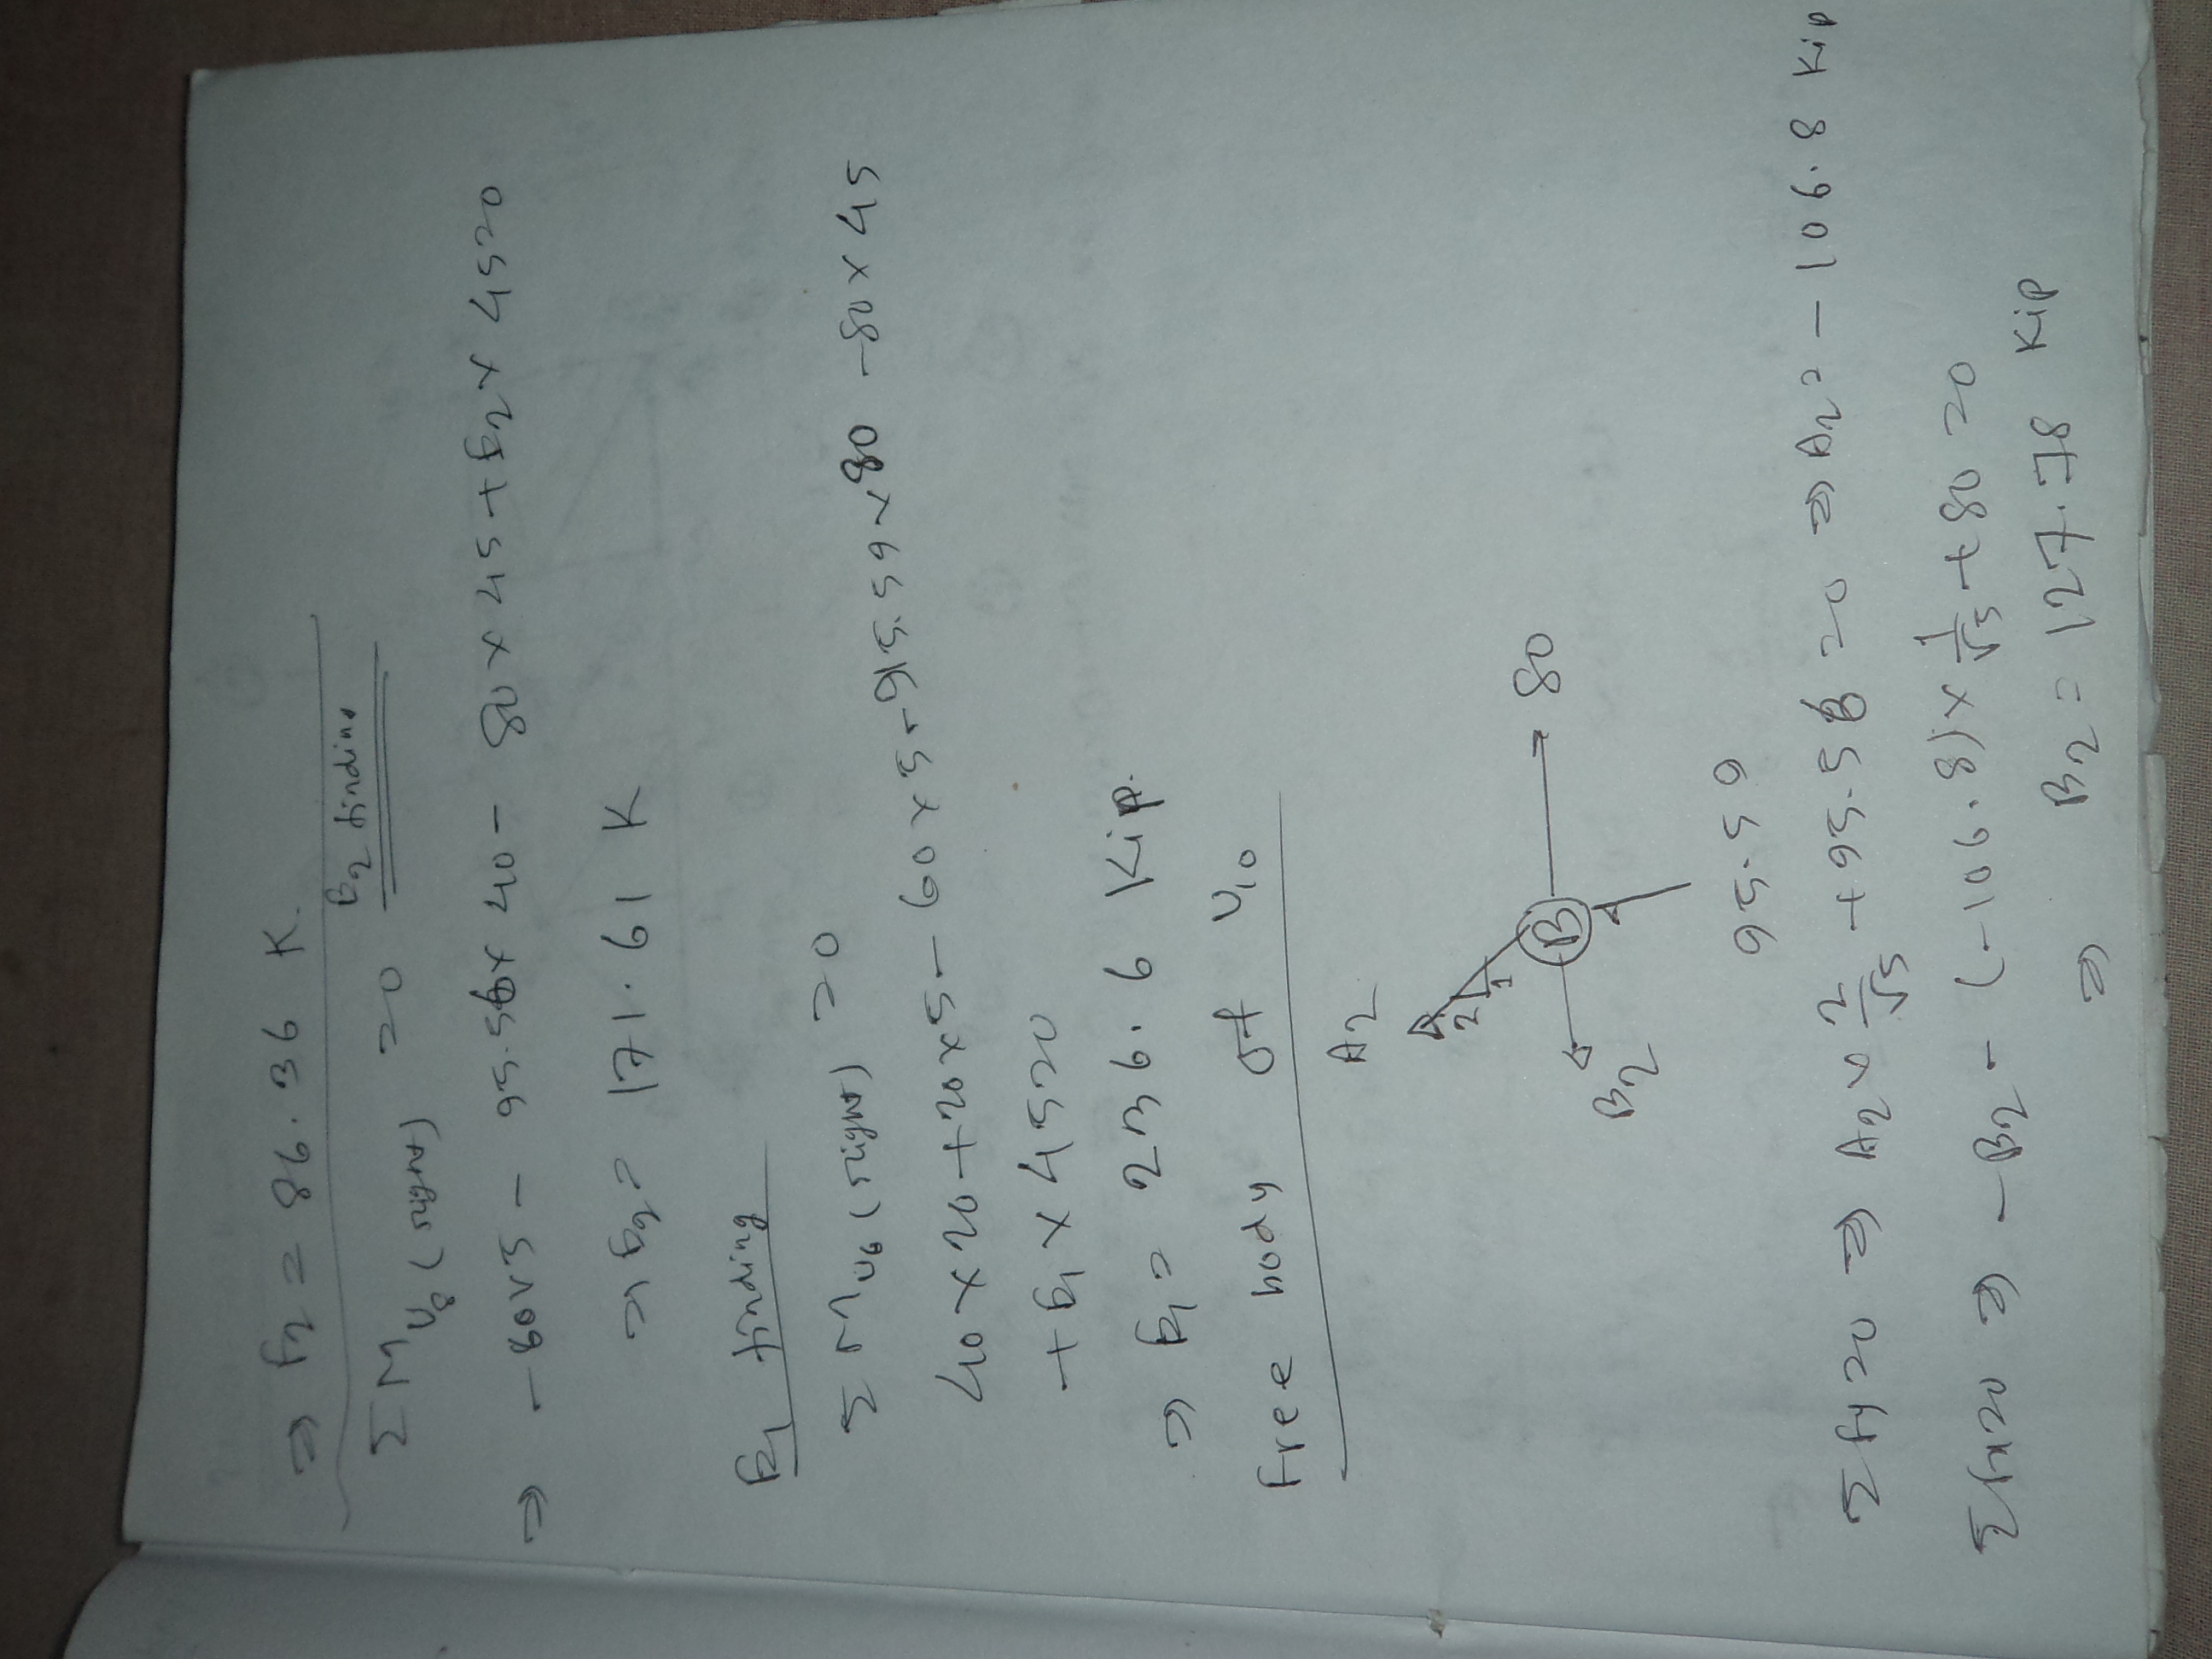 ⇒ F₂ = 86.36 K.
F₂ finding
ΣM U₈ (right) = 0
⇒ -80×5 - 95.56×40 - 80×45 + F₂×45=0
⇒ F₂ = 171.61 K
F₁ finding
ΣM U₆ (right) = 0
40×20+20×5-60×5-95.59×80-80×45
+F₁×45=0
⇒ F₁ = 236.6 Kip.
Free body of U₁₀
A₂
2
1
B
80
B₂
95.59
ΣFy=0 ⇒ A₂×2/√5 +95.56=0 ⇒ A₂=-106.8 Kip
ΣFx=0 ⇒ -B₂-(-106.8)×1/√5+80=0
⇒ B₂=127.78 Kip